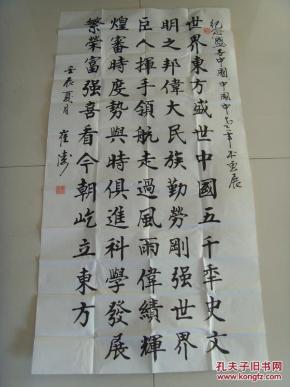 世界東方盛世中國五千年史文
明之邦偉大民族勤勞剛强世界
巨人揮手領航走過風雨偉績輝
煌審時度勢與時俱進科學發展
繁榮富强喜看今朝屹立東方
壬辰夏月
孔夫子旧书网